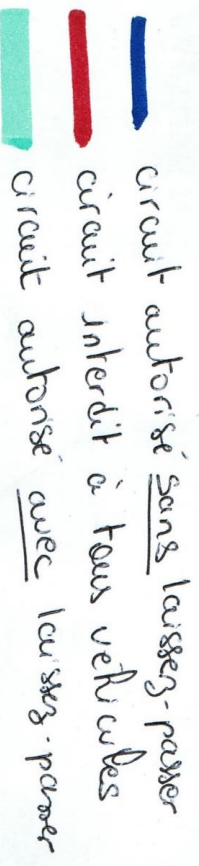 circuit autorisé sans laissez-passer
circuit interdit à tous véhicules
circuit autorisé avec laissez-passer